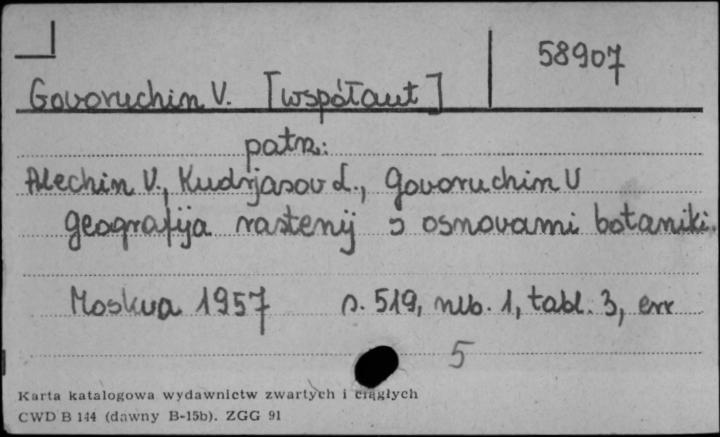 58907
Govoruchin V. [współaut]
patrz:
Alechin V., Kudrjasov L., Govoruchin V
geografija rastenij s osnovami botaniki.
Moskva 1957 s. 519, nlb. 1, tabl. 3, err
5
Karta katalogowa wydawnictw zwartych i ciągłych
CWD B 144 (dawny B-15b). ZGG 91